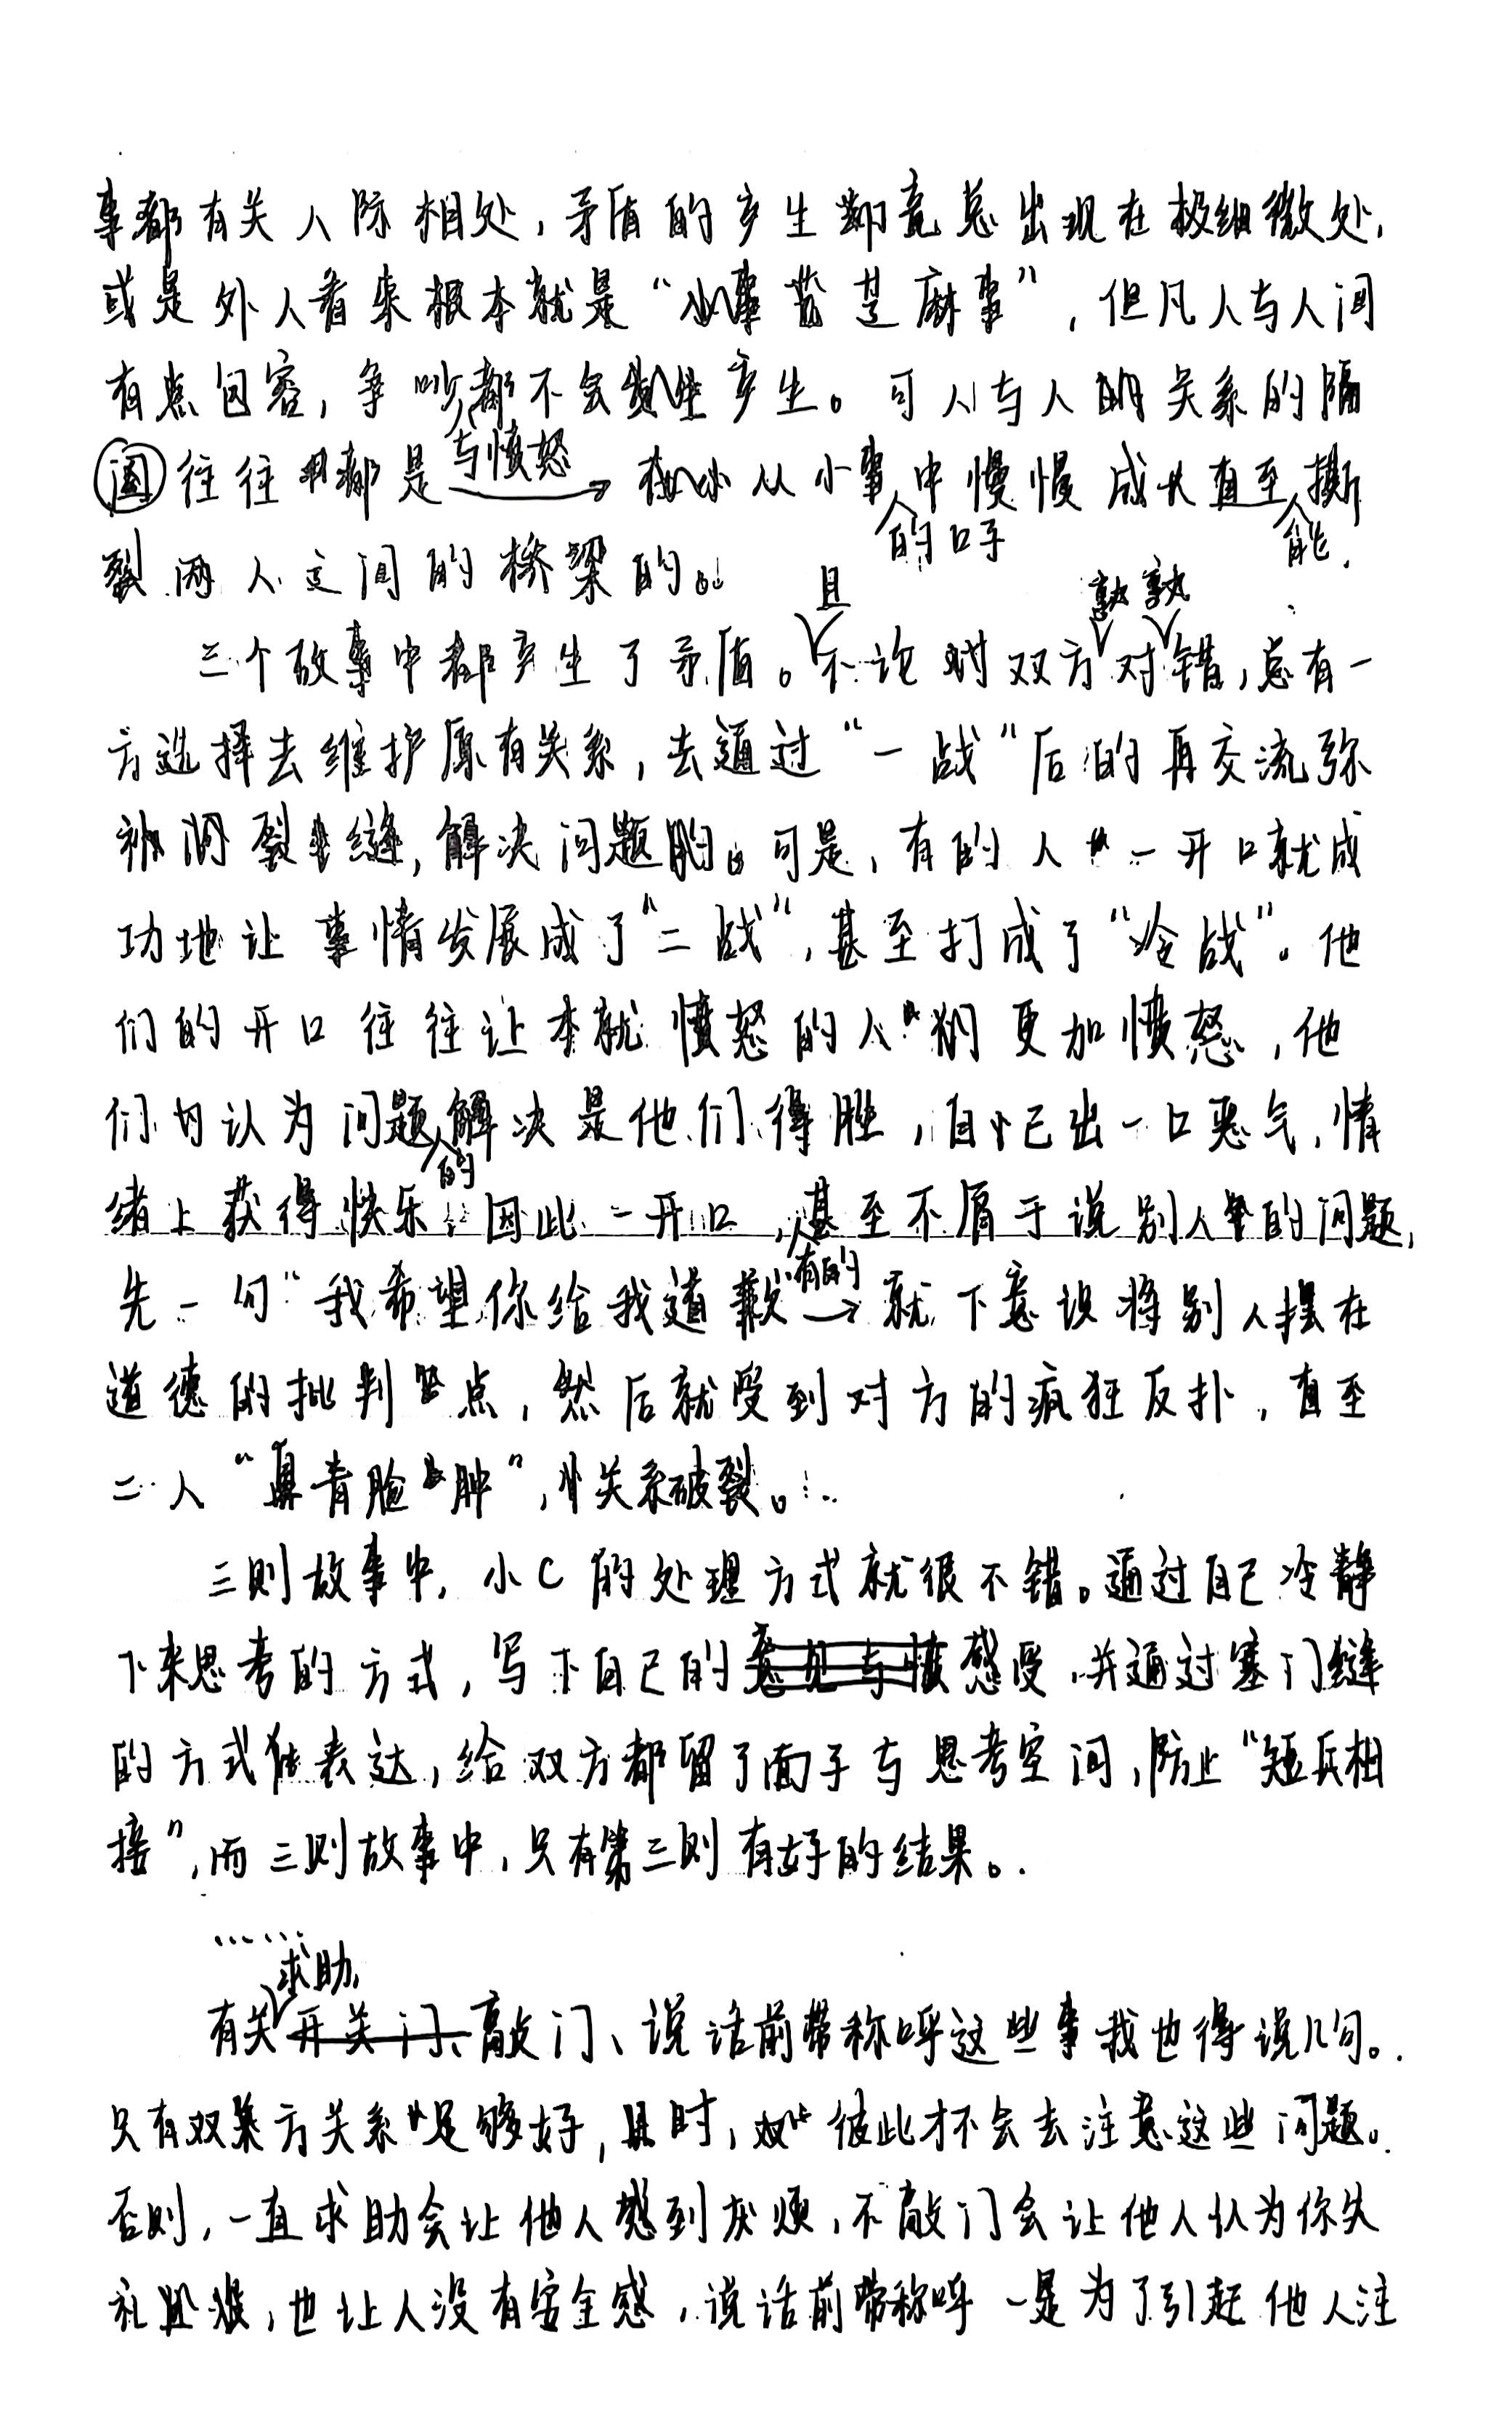 事都有关人际相处，矛盾的产生却竟总出现在极细微处，
或是外人看来根本就是“小事芝麻事”，但凡人与人间
有点包容，争吵都不会产生。可人与人的关系的隔
阂与愤怒往往都是从小事的口子中慢慢成长直至能撕
裂两人之间的桥梁的。
三个故事中都产生了矛盾。且不论双方孰对孰错，总有一
方选择去维护原有关系，去通过“一战”后的再交流弥
补裂缝，解决问题的。可是，有的人一开口就成
功地让事情发展成了“二战”，甚至打成了“冷战”。他
们的开口往往让本就愤怒的人更加愤怒，他
们认为问题的解决是他们得胜，自己出一口恶气，情
绪上获得快乐。因此一开口，有的甚至不屑于说别人的问题，
先一句“我希望你给我道歉”就下意识将别人摆在
道德的批判点，然后就受到对方的疯狂反扑，直至
二人“鼻青脸肿”，关系破裂。
三则故事中，小C的处理方式就很不错。通过自己冷静
下来思考的方式，写下自己的感受，并通过塞门缝
的方式表达，给双方都留了面子与思考空间，防止“短兵相
接”，而三则故事中，只有第三则有好的结果。
……
有关求助、敲门、说话前带称呼这些事我也得说几句。
只有双方关系足够好时，彼此才不会去注意这些问题。
否则，一直求助会让他人感到厌烦，不敲门会让他人认为你失
礼，也让人没有安全感，说话前带称呼一是为了引起他人注